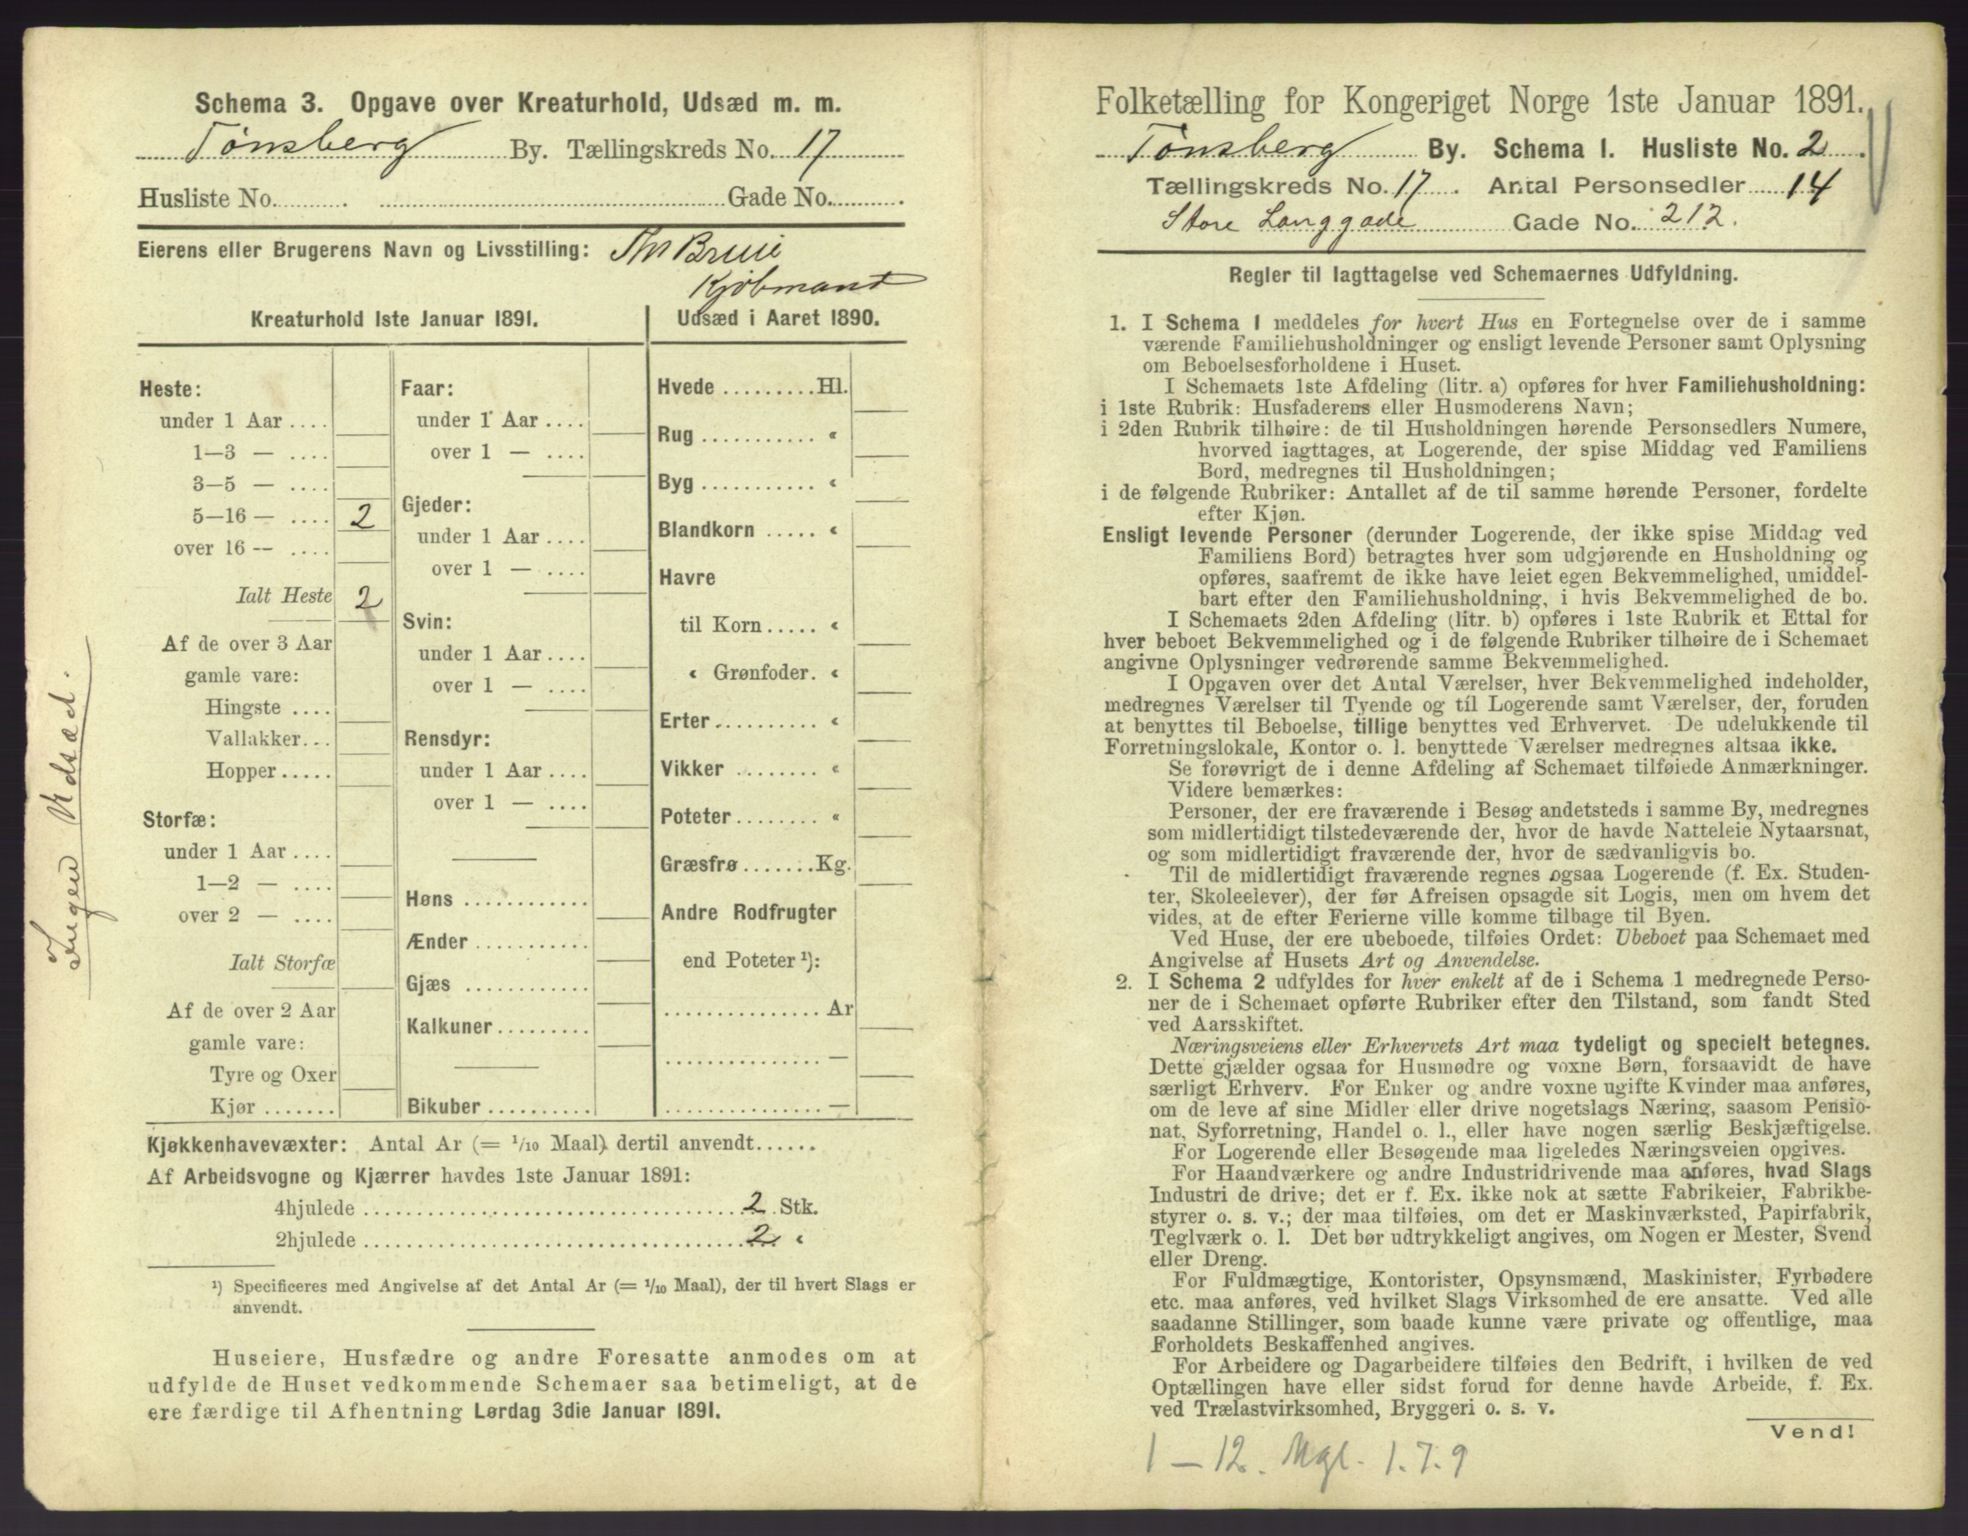 Schema 3. Opgave over Kreaturhold, Udsæd m. m.
Tønsberg By. Tællingskreds No. 17
Husliste No. Gade No.
Eierens eller Brugerens Navn og Livsstilling: Th Bruu
Kjøbmand
Kreaturhold 1ste Januar 1891.
Heste:
under 1 Aar ....
1—3 — ....
3—5 — ....
5—16 — .... 2
over 16 — ....
Ialt Heste 2
Af de over 3 Aar
gamle vare:
Hingste ....
Vallakker...
Hopper.....
Storfæ:
under 1 Aar ....
1—2 — ....
over 2 — ....
Ialt Storfæ
Af de over 2 Aar
gamle vare:
Tyre og Oxer
Kjør .......
Faar:
under 1 Aar ....
over 1 — ....
Gjeder:
under 1 Aar ....
over 1 — ....
Svin:
under 1 Aar ....
over 1 — ....
Rensdyr:
under 1 Aar ....
over 1 — ....
Høns ............
Ænder ...........
Gjæs ............
Kalkuner.........
Bikuber ..........
Udsæd i Aaret 1890.
Hvede .........Hl.
Rug ........... «
Byg ........... «
Blandkorn ..... «
Havre
til Korn..... «
« Grønfoder. «
Erter.......... «
Vikker ........ «
Poteter........ «
Græsfrø.......Kg.
Andre Rodfrugter
end Poteter ¹):
............... Ar
............... —
............... —
Ingen Udsæd.
Kjøkkenhavevæxter: Antal Ar (= 1/10 Maal) dertil anvendt......
Af Arbeidsvogne og Kjærrer havdes 1ste Januar 1891:
4hjulede .................... 2 Stk.
2hjulede .................... 2 «
¹) Specificeres med Angivelse af det Antal Ar (= 1/10 Maal), der til hvert Slags er
anvendt.
Huseiere, Husfædre og andre Foresatte anmodes om at
udfylde de Huset vedkommende Schemaer saa betimeligt, at de
ere færdige til Afhentning Lørdag 3die Januar 1891.
Folketælling for Kongeriget Norge 1ste Januar 1891.
Tønsberg By. Schema 1. Husliste No. 2
Tællingskreds No. 17. Antal Personsedler 14
Store Langgade Gade No. 212.
Regler til Iagttagelse ved Schemaernes Udfyldning.
1. I Schema 1 meddeles for hvert Hus en Fortegnelse over de i samme
værende Familiehusholdninger og ensligt levende Personer samt Oplysning
om Beboelsesforholdene i Huset.
I Schemaets 1ste Afdeling (litr. a) opføres for hver Familiehusholdning:
i 1ste Rubrik: Husfaderens eller Husmoderens Navn;
i 2den Rubrik tilhøire: de til Husholdningen hørende Personsedlers Numere,
hvorved iagttages, at Logerende, der spise Middag ved Familiens
Bord, medregnes til Husholdningen;
i de følgende Rubriker: Antallet af de til samme hørende Personer, fordelte
efter Kjøn.
Ensligt levende Personer (derunder Logerende, der ikke spise Middag ved
Familiens Bord) betragtes hver som udgjørende en Husholdning og
opføres, saafremt de ikke have leiet egen Bekvemmelighed, umiddel-
bart efter den Familiehusholdning, i hvis Bekvemmelighed de bo.
I Schemaets 2den Afdeling (litr. b) opføres i 1ste Rubrik et Ettal for
hver beboet Bekvemmelighed og i de følgende Rubriker tilhøire de i Schemaet
angivne Oplysninger vedrørende samme Bekvemmelighed.
I Opgaven over det Antal Værelser, hver Bekvemmelighed indeholder,
medregnes Værelser til Tyende og til Logerende samt Værelser, der, foruden
at benyttes til Beboelse, tillige benyttes ved Erhvervet. De udelukkende til
Forretningslokale, Kontor o. l. benyttede Værelser medregnes altsaa ikke.
Se forøvrigt de i denne Afdeling af Schemaet tilføiede Anmærkninger.
Videre bemærkes:
Personer, der ere fraværende i Besøg andetsteds i samme By, medregnes
som midlertidigt tilstedeværende der, hvor de havde Natteleie Nytaarsnat,
og som midlertidigt fraværende der, hvor de sædvanligvis bo.
Til de midlertidigt fraværende regnes ogsaa Logerende (f. Ex. Studen-
ter, Skoleelever), der før Afreisen opsagde sit Logis, men om hvem det
vides, at de efter Ferierne ville komme tilbage til Byen.
Ved Huse, der ere ubeboede, tilføies Ordet: Ubeboet paa Schemaet med
Angivelse af Husets Art og Anvendelse.
2. I Schema 2 udfyldes for hver enkelt af de i Schema 1 medregnede Perso-
ner de i Schemaet opførte Rubriker efter den Tilstand, som fandt Sted
ved Aarsskiftet.
Næringsveiens eller Erhvervets Art maa tydeligt og specielt betegnes.
Dette gjælder ogsaa for Husmødre og voxne Børn, forsaavidt de have
særligt Erhverv. For Enker og andre voxne ugifte Kvinder maa anføres,
om de leve af sine Midler eller drive nogetslags Næring, saasom Pensio-
nat, Syforretning, Handel o. l., eller have nogen særlig Beskjæftigelse.
For Logerende eller Besøgende maa ligeledes Næringsveien opgives.
For Haandværkere og andre Industridrivende maa anføres, hvad Slags
Industri de drive; det er f. Ex. ikke nok at sætte Fabrikeier, Fabrikbe-
styrer o. s. v.; der maa tilføies, om det er Maskinværksted, Papirfabrik,
Teglværk o. l. Det bør udtrykkeligt angives, om Nogen er Mester, Svend
eller Dreng.
For Fuldmægtige, Kontorister, Opsynsmænd, Maskinister, Fyrbødere
etc. maa anføres, ved hvilket Slags Virksomhed de ere ansatte. Ved alle
saadanne Stillinger, som baade kunne være private og offentlige, maa
Forholdets Beskaffenhed angives.
For Arbeidere og Dagarbeidere tilføies den Bedrift, i hvilken de ved
Optællingen have eller sidst forud for denne havde Arbeide, f. Ex.
ved Trælastvirksomhed, Bryggeri o. s. v.
Vend!
1 — 12. Mgl. 1. 7. 9